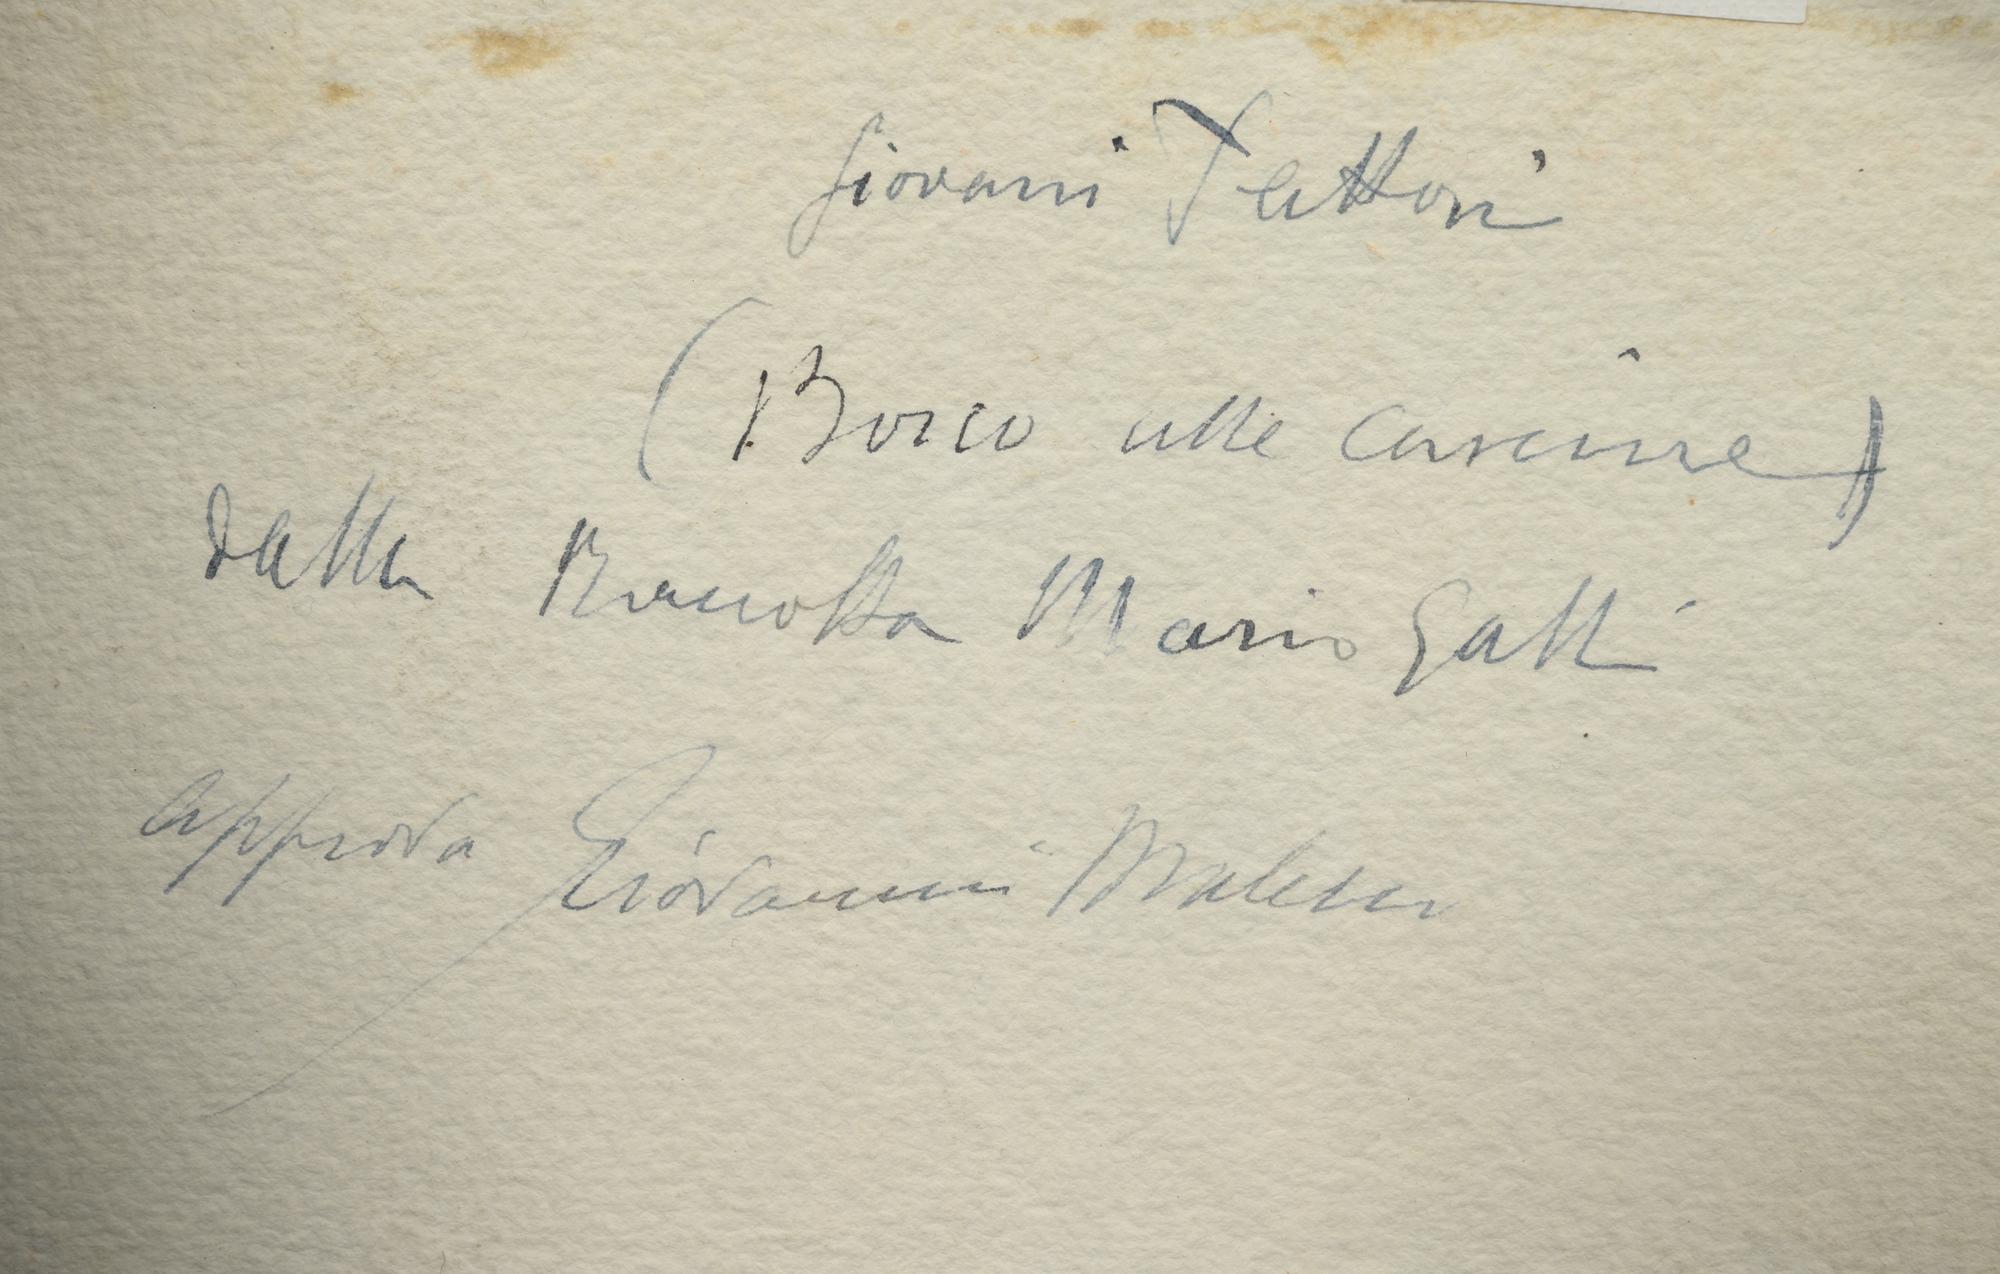 Giovanni Fattori
(Bosco alle Cascine)
dalla Raccolta Mario Galli
approva Giovanni Malesci